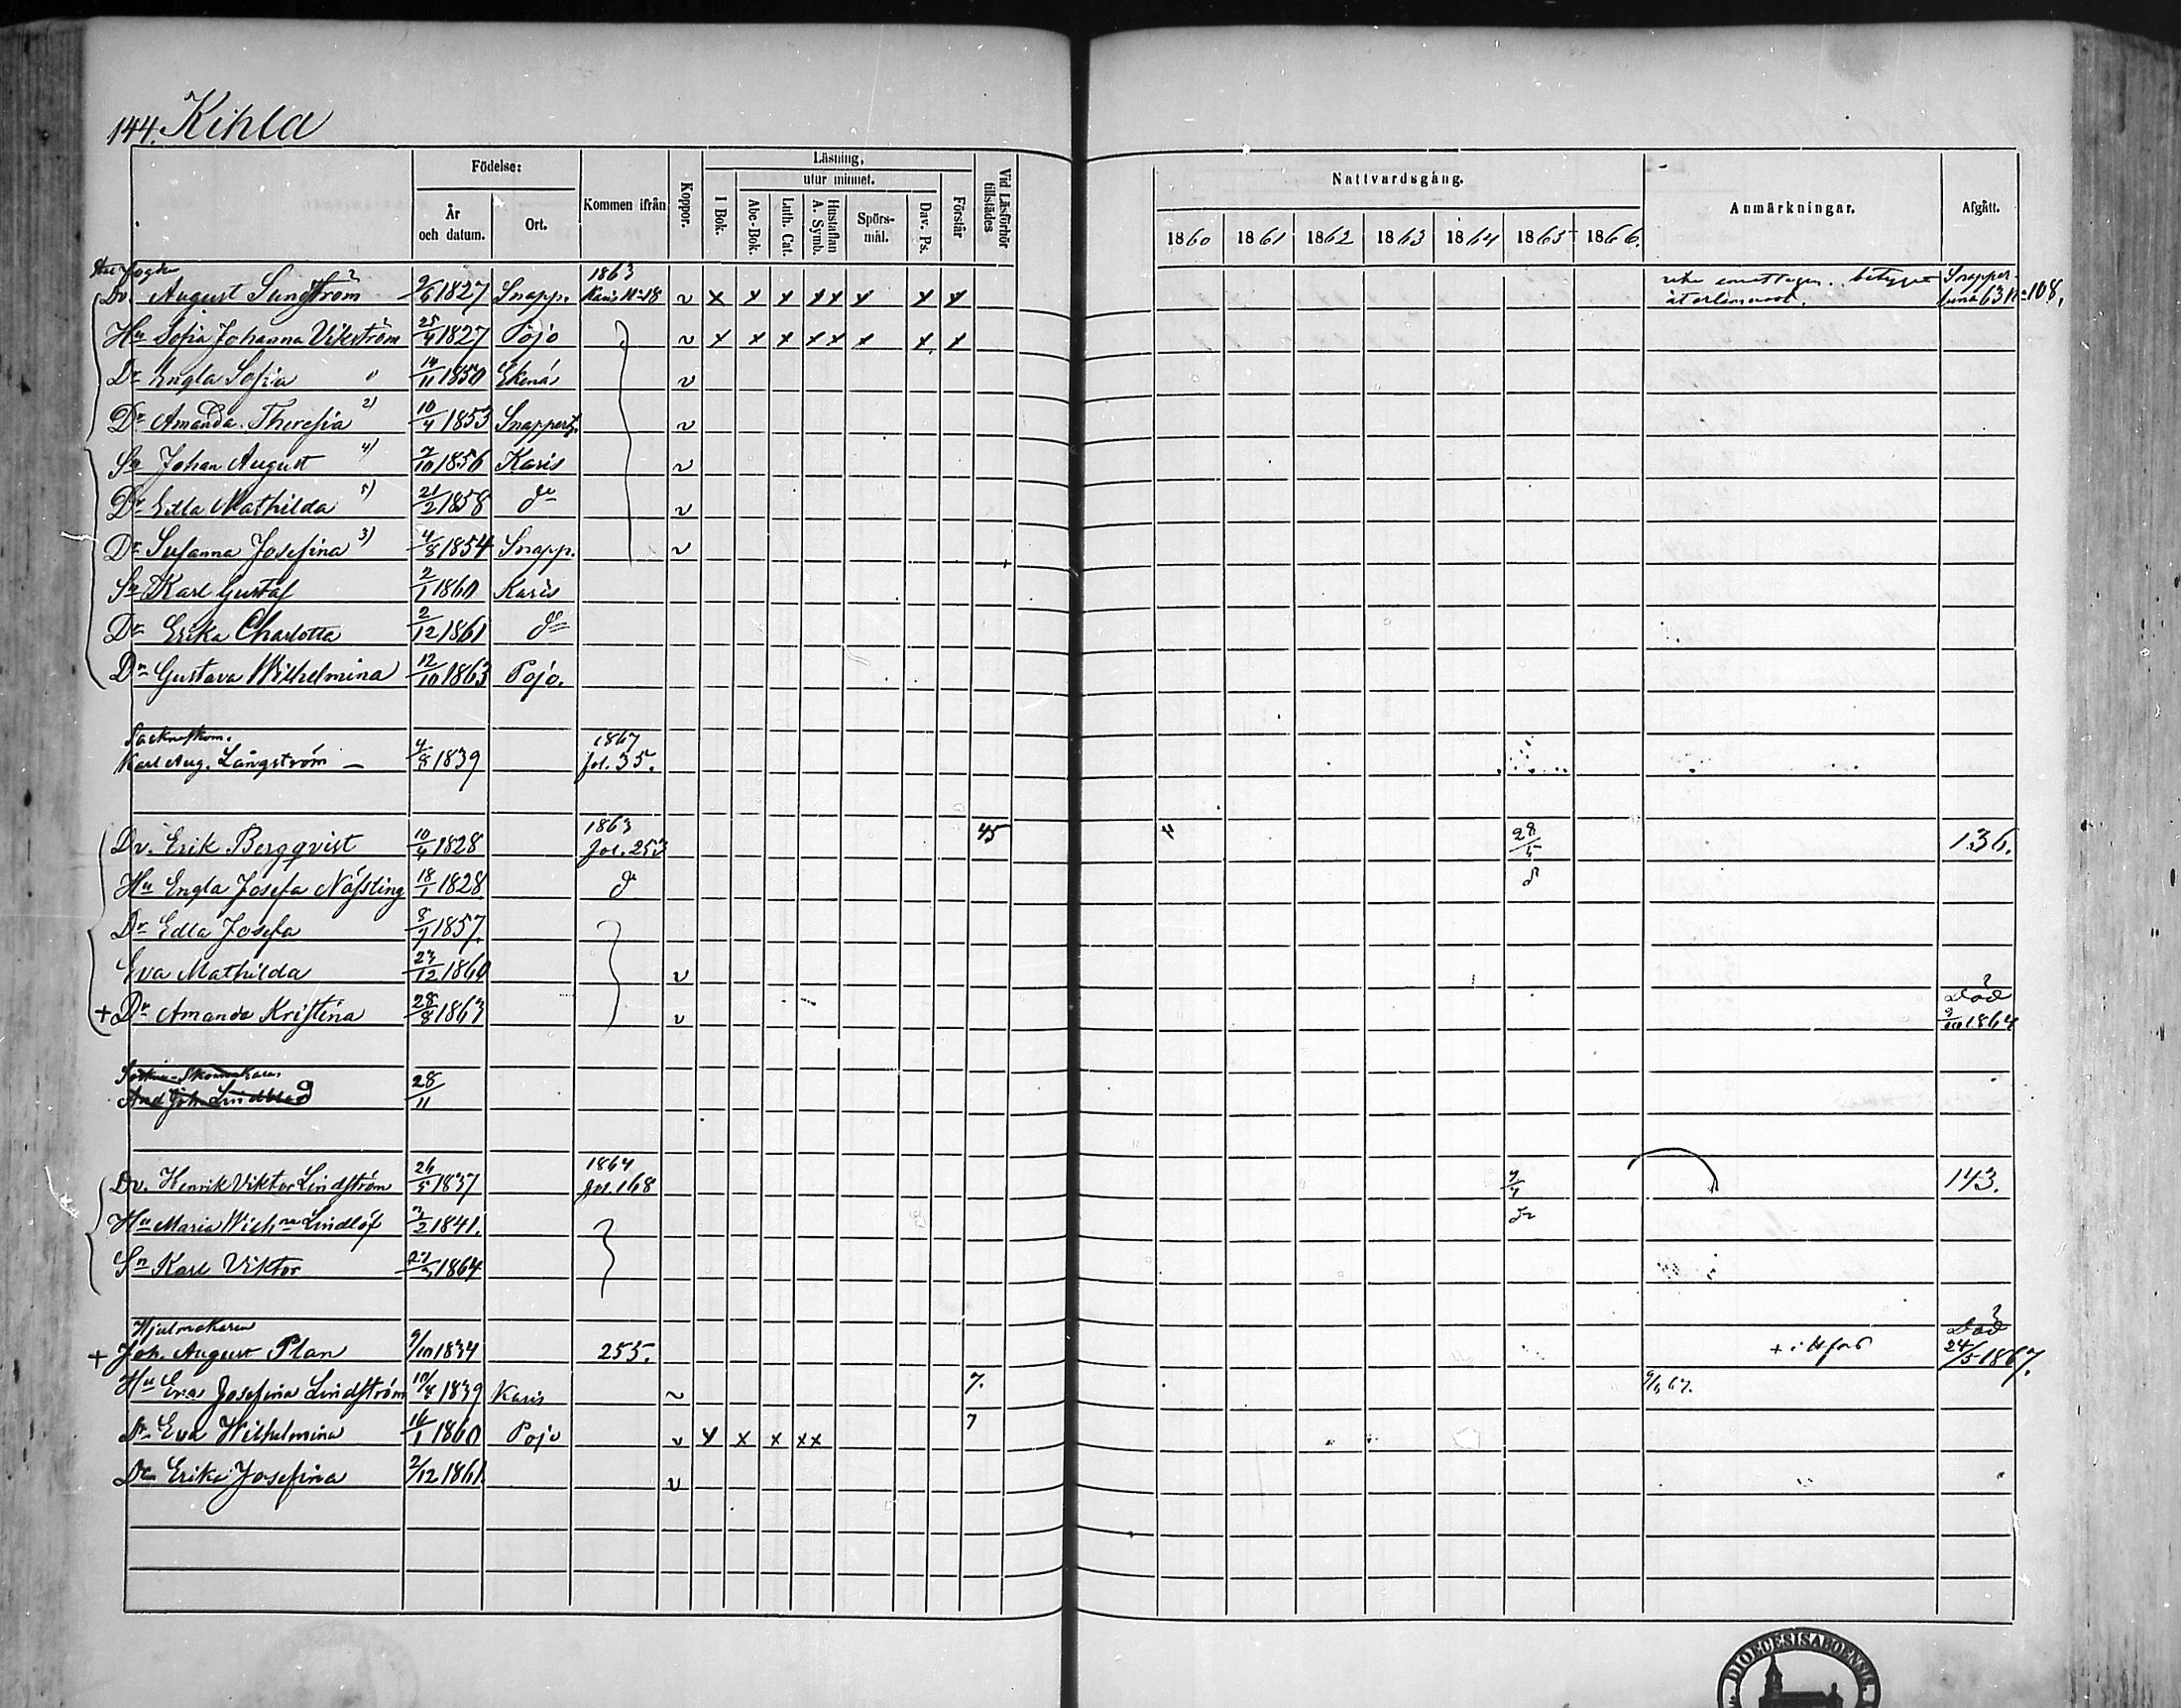 144. Kihla
Födelse:
År och datum.
Ort.
Kommen ifrån
Koppor.
Läsning,
I Bok.
utur minnet.
Abc-Bok.
Luth. Cat.
Hustaflan A. Symb.
Spörsmål.
Dav. Ps.
Förstår
Vid Läsförhör tillstädes
Nattvardsgång.
1860 1861 1862 1863 1864 1865 1866.
Anmärkningar.
Afgått.
Dv. August Sundström 1827 Snapp. 1863 Karis No 18 v x x x x x x x x återlemnadt. 63 No 108.
Hu Sofia Johanna Vikström 25/4 1827 Pojo v x x x x x x x x
Dr Engla Sofia 1850 Ekenäs v
Dr Amanda Theresia 2) 10/4 1853 v
Sn Johan August 4) 1856 Karis v
Dr Edla Mathilda 5) 21/2 1858 do v
Dr Susanna Josefina 3) 4/8 1854 Snapp. v
Sn Karl Gustaf 2/1 1860 Karis
Dr Erika Charlotta 2/12 1861 do
Dr Gustava Wilhelmina 12/10 1863 Pojo.
Karl Aug. Långström 4/8 1839 1867 fol. 35.
Dv. Erik Bergqvist 10/4 1828 1863 fol. 253 45 28/5 136.
Hu Engla Josefa Näfsling 18/1 1828 do
Dr Edla Josefa 1857.
Eva Mathilda 23/12 1860 v
+ Dr Amanda Kristina 28/8 1863 v Död 1864
And Joh. Lindblad 28/11
Dv. Henrik Viktor Lindström 26/5 1837 1864 fol. 168 143.
Hu Maria Wilh:na Lindlöf 1841.
Sn Karl Viktor 1864
Hjulmakaren
+ Joh. August Plan 9/10 1834 255. Död 24/5 1867.
Hu Eva Josefina Lindström 10/8 1839 Karis v 7.
Dr Eva Wilhelmina 16/1 1860 Pojo v x x x x x 7
Dr Erika Josefina 2/12 1861 v
DIOECESIS ABOENSIS